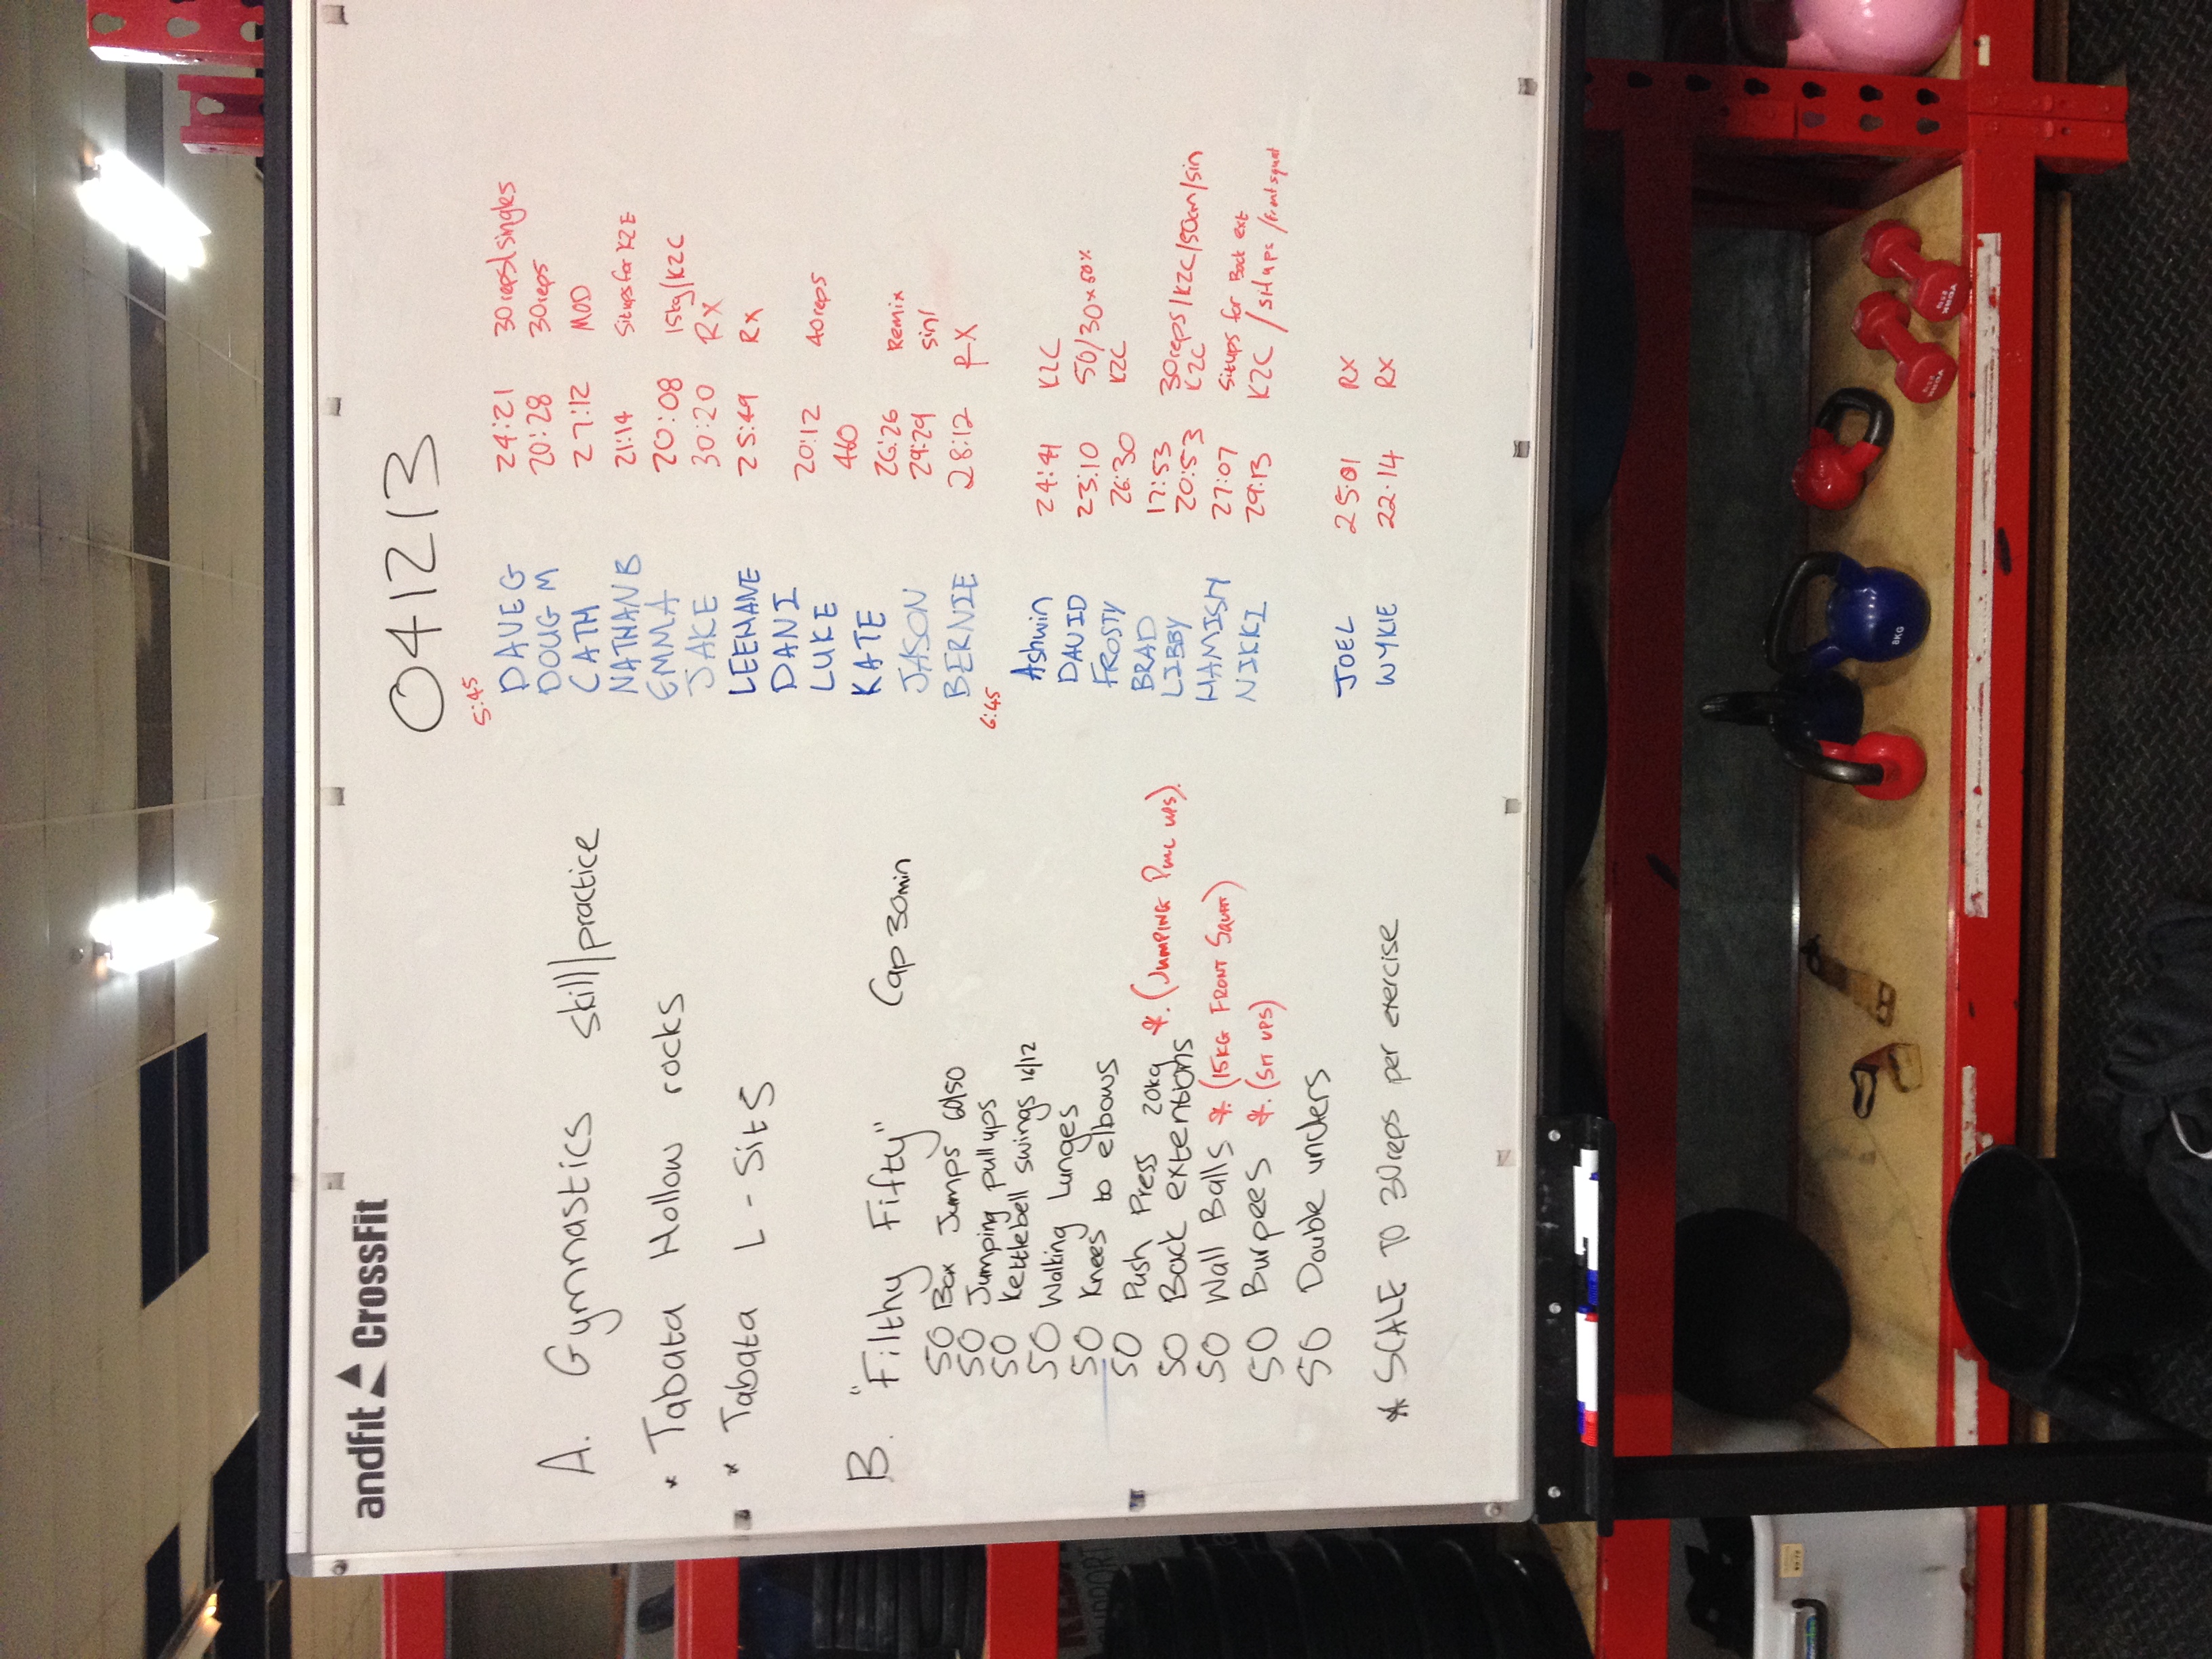 andfit CrossFit
041213
A. Gymnastics skill/practice
* Tabata Hollow rocks
* Tabata L - Sits
B. "Filthy Fifty" Cap 30min
50 Box Jumps 60/50
50 Jumping pull ups
50 Kettlebell swings 16/12
50 Walking Lunges
50 Knees to elbows
50 Push Press 20kg
50 Back extentions *. (JUMPING PULL UPS).
50 Wall Balls *. (15KG FRONT SQUAT)
50 Burpees *. (SIT UPS)
50 Double unders
* SCALE TO 30reps per exercise
5:45
DAVE G 24:21 30reps/singles
DOUG M 20:28 30reps
CATH 27:12 MOD
NATHAN B 21:14 Situps for K2E
EMMA 20:08 15kg/K2C
JAKE 30:20 RX
LEEHANE 25:49 RX
DANI 20:12 40reps
LUKE 460
KATE 26:26 Remix
JASON 29:29 sinl
BERNIE 28:12 RX
6:45
Ashwin 24:41 K2C
DAVID 23:10 50/30x60%
FROSTY 26:30 K2C
BRAD 17:53 30reps/K2C/50cm/sin
LIBBY 20:53 K2C
HAMISH 27:07 Situps for Back ext
NIKKI 29:13 K2C/situps/front squat
JOEL 25:01 RX
WYKIE 22:14 RX
8KG